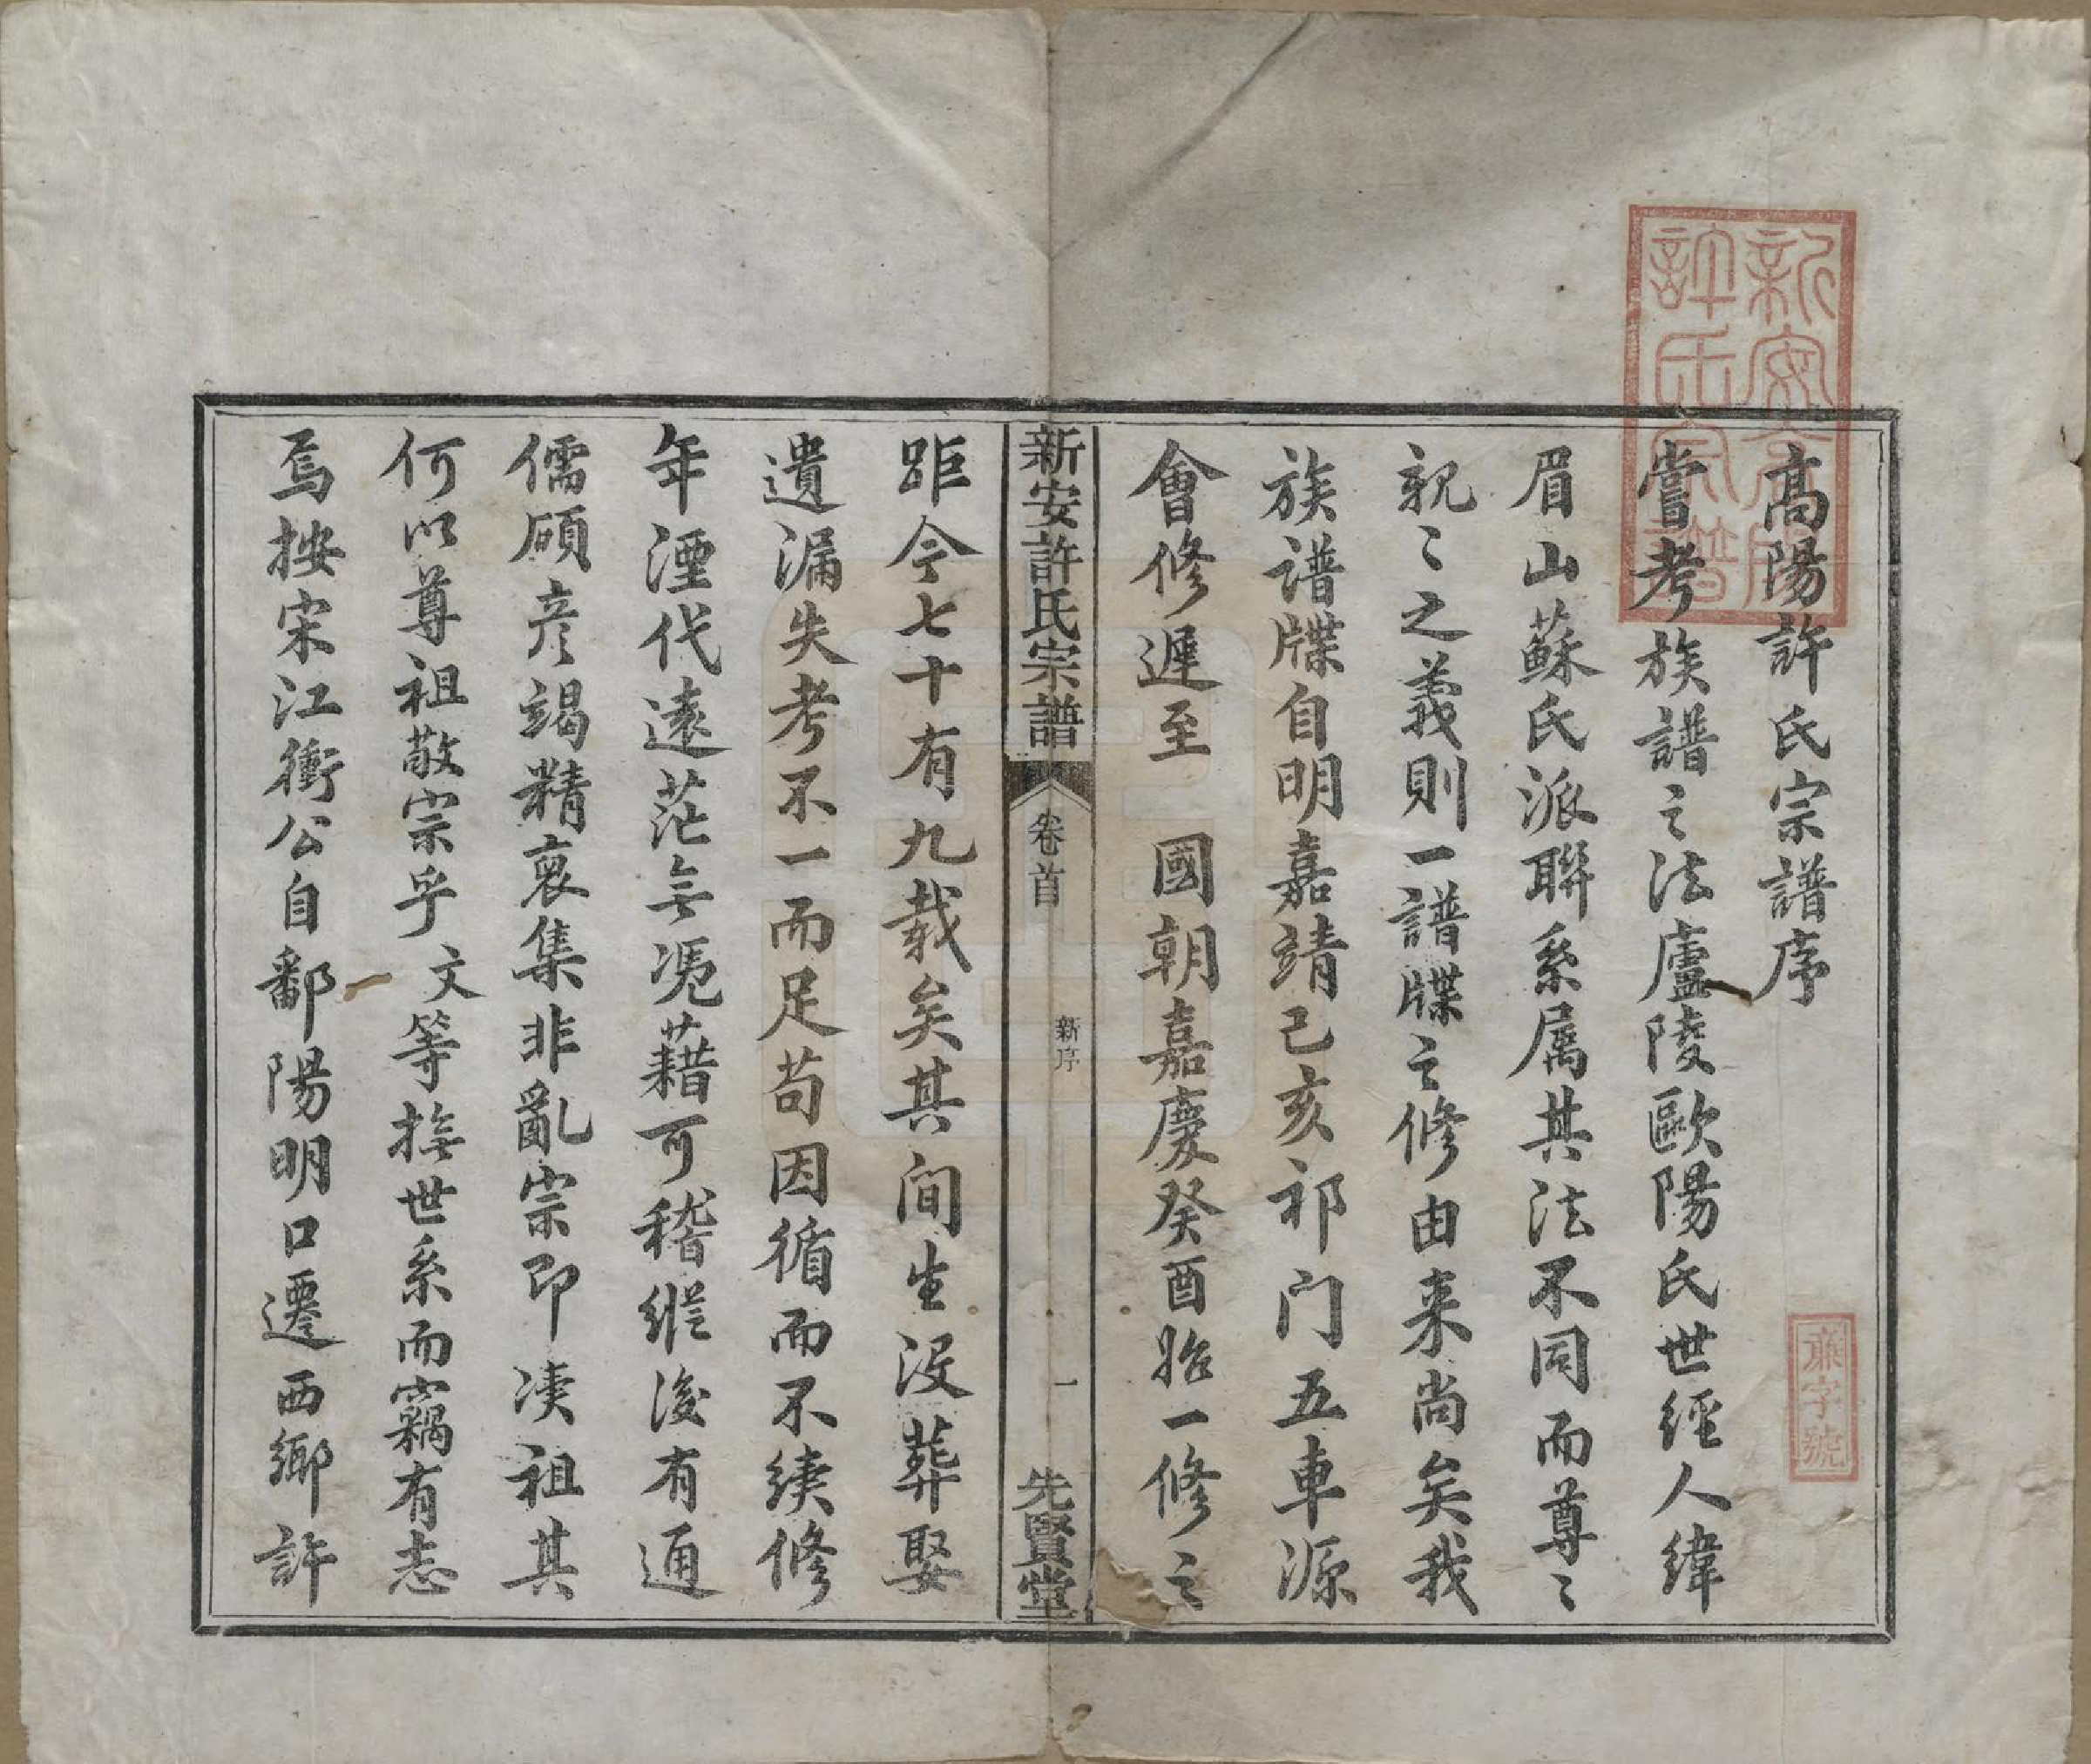 高陽許氏宗譜序
嘗考族譜之法廬陵歐陽氏世經人緯
眉山蘇氏派聯系属其法不同而尊〻
親〻之義則一譜牒之修由来尚矣我
族譜牒自明嘉靖己亥祁门五車源
會修遲至　國朝嘉慶癸酉始一修之
新安許氏宗譜
卷首
新序
一
先賢堂
距今七十有九载矣其间生没葬娶
遺漏失考不一而足苟因循而不续修
年湮代遠茫無凴藉可稽縱後有通
儒碩彦竭精裒集非亂宗即凟祖其
何以尊祖敬宗乎文等撫世系而竊有志
焉按宋江衝公自鄱陽明口遷西鄉許
新安
許氏宗譜
字號